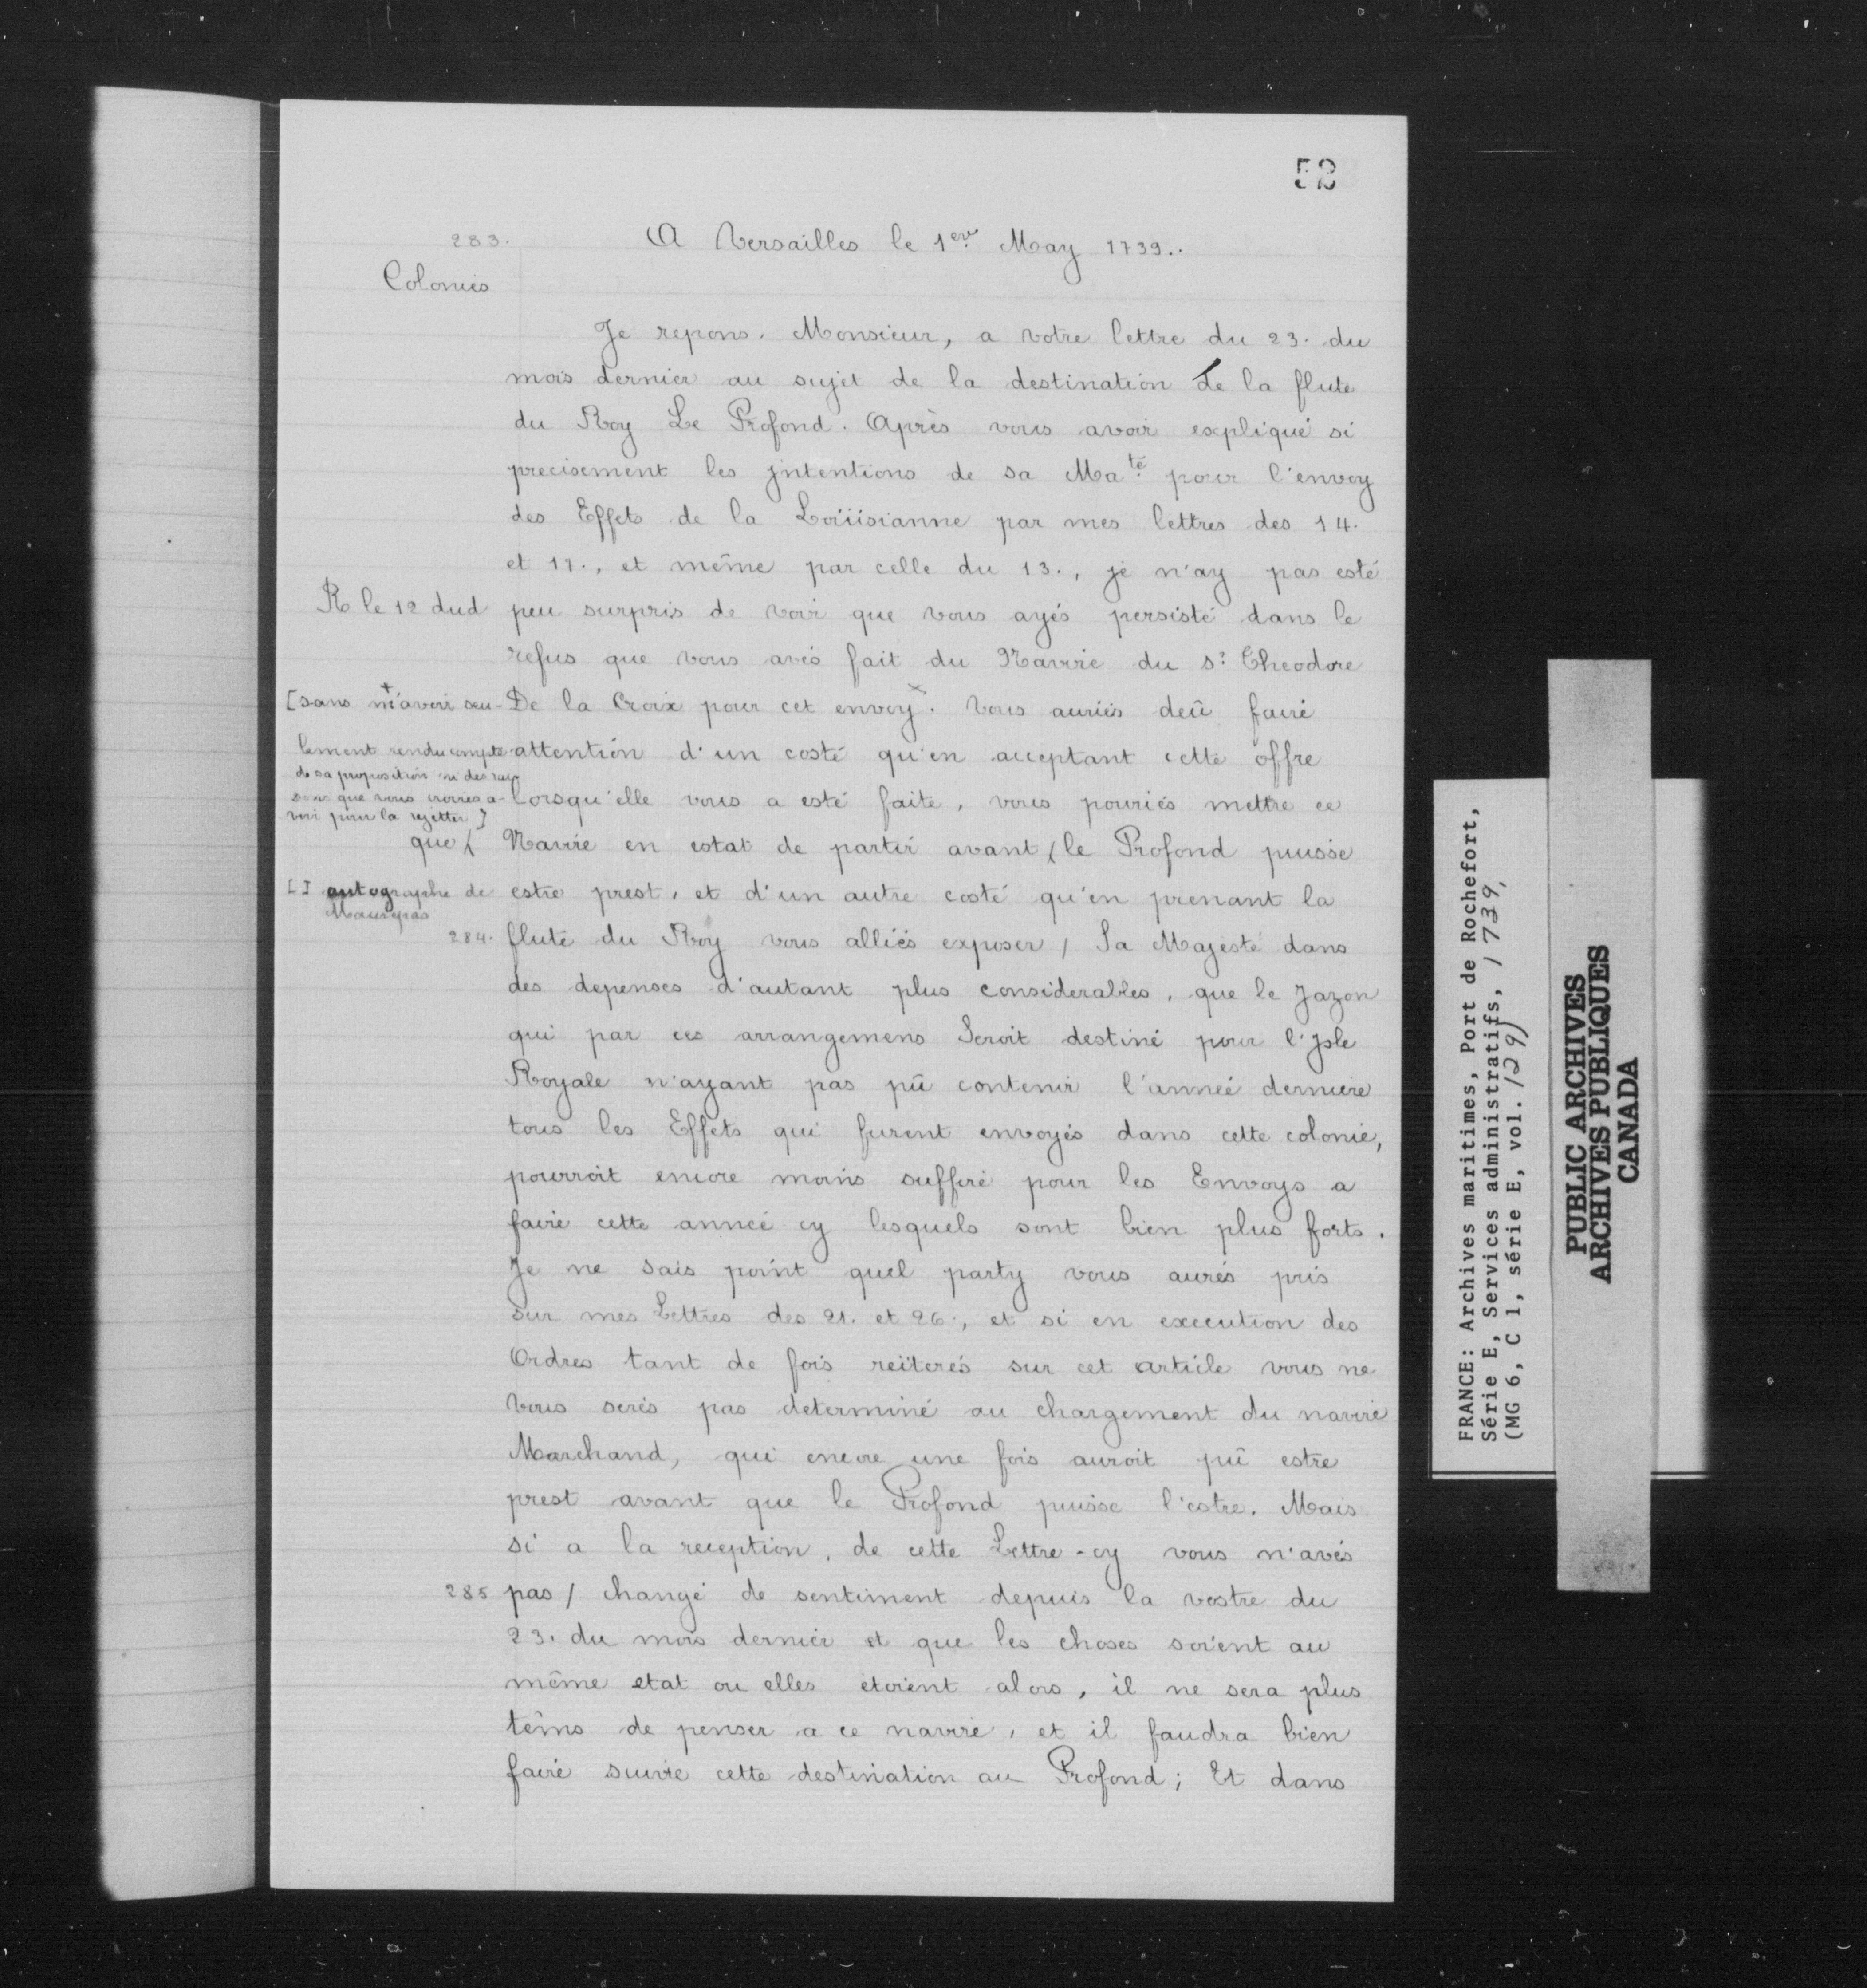 52
283.
A Versailles le 1er May 1739..
Colonies
Je repons. Monsieur, a votre lettre du 23. du
mois dernier au sujet de la destination de la flute
du Roy Le Profond. Après vous avoir expliqué si
precisement les jntentions de sa Maté pour l'envoy
des Effets de la Loüisianne par mes lettres des 14.
et 17., et même par celle du 13., je n'ay pas esté
R le 12 dud
peu surpris de voir que vous ayés persisté dans le
refus que vous avés fait du Navire du sr Theodore
De la Croix pour cet envoy x. Vous auriés deû faire
[sans + m'avoir seu-
lement rendu compte
de sa proposition ni des rai-
sons que vous croiriés a-
voir pour la rejetter]
attention d'un costé qu'en acceptant cette offre
lorsqu'elle vous a esté faite, vous pouriés mettre ce
que /
Navire en estat de partir avant / le Profond puisse
[ ] autographe de
Maurepas
estre prest, et d'un autre costé qu'en prenant la
284.
flute du Roy vous alliés exposer / Sa Majesté dans
des depenses d'autant plus considerables, que le Jazon
qui par ces arrangemens Seroit destiné pour l'Jsle
Royale n'ayant pas pû contenir l'année derniere
tous les Effets qui furent envoyés dans cette colonie,
pourroit encore moins suffire pour les Envoys a
faire cette année cy lesquels sont bien plus forts.
Je ne sais point quel party vous aurés pris
sur mes Lettres des 21. et 26., et si en execution des
Ordres tant de fois reïterés sur cet article vous ne
vous serés pas determiné au chargement du navire
Marchand, qui encore une fois auroit pû estre
prest avant que le Profond puisse l'estre. Mais
si a la reception, de cette Lettre-cy vous n'avés
285
pas / changé de sentiment depuis la vostre du
23. du mois dernier et que les choses soient au
même etat ou elles etoient alors, il ne sera plus
têms de penser a ce navire, et il faudra bien
faire suivre cette destination au Profond; Et dans
FRANCE: Archives maritimes, Port de Rochefort,
Série E, Services administratifs, 1739,
(MG 6, C 1, série E, vol. 129)
PUBLIC ARCHIVES
ARCHIVES PUBLIQUES
CANADA